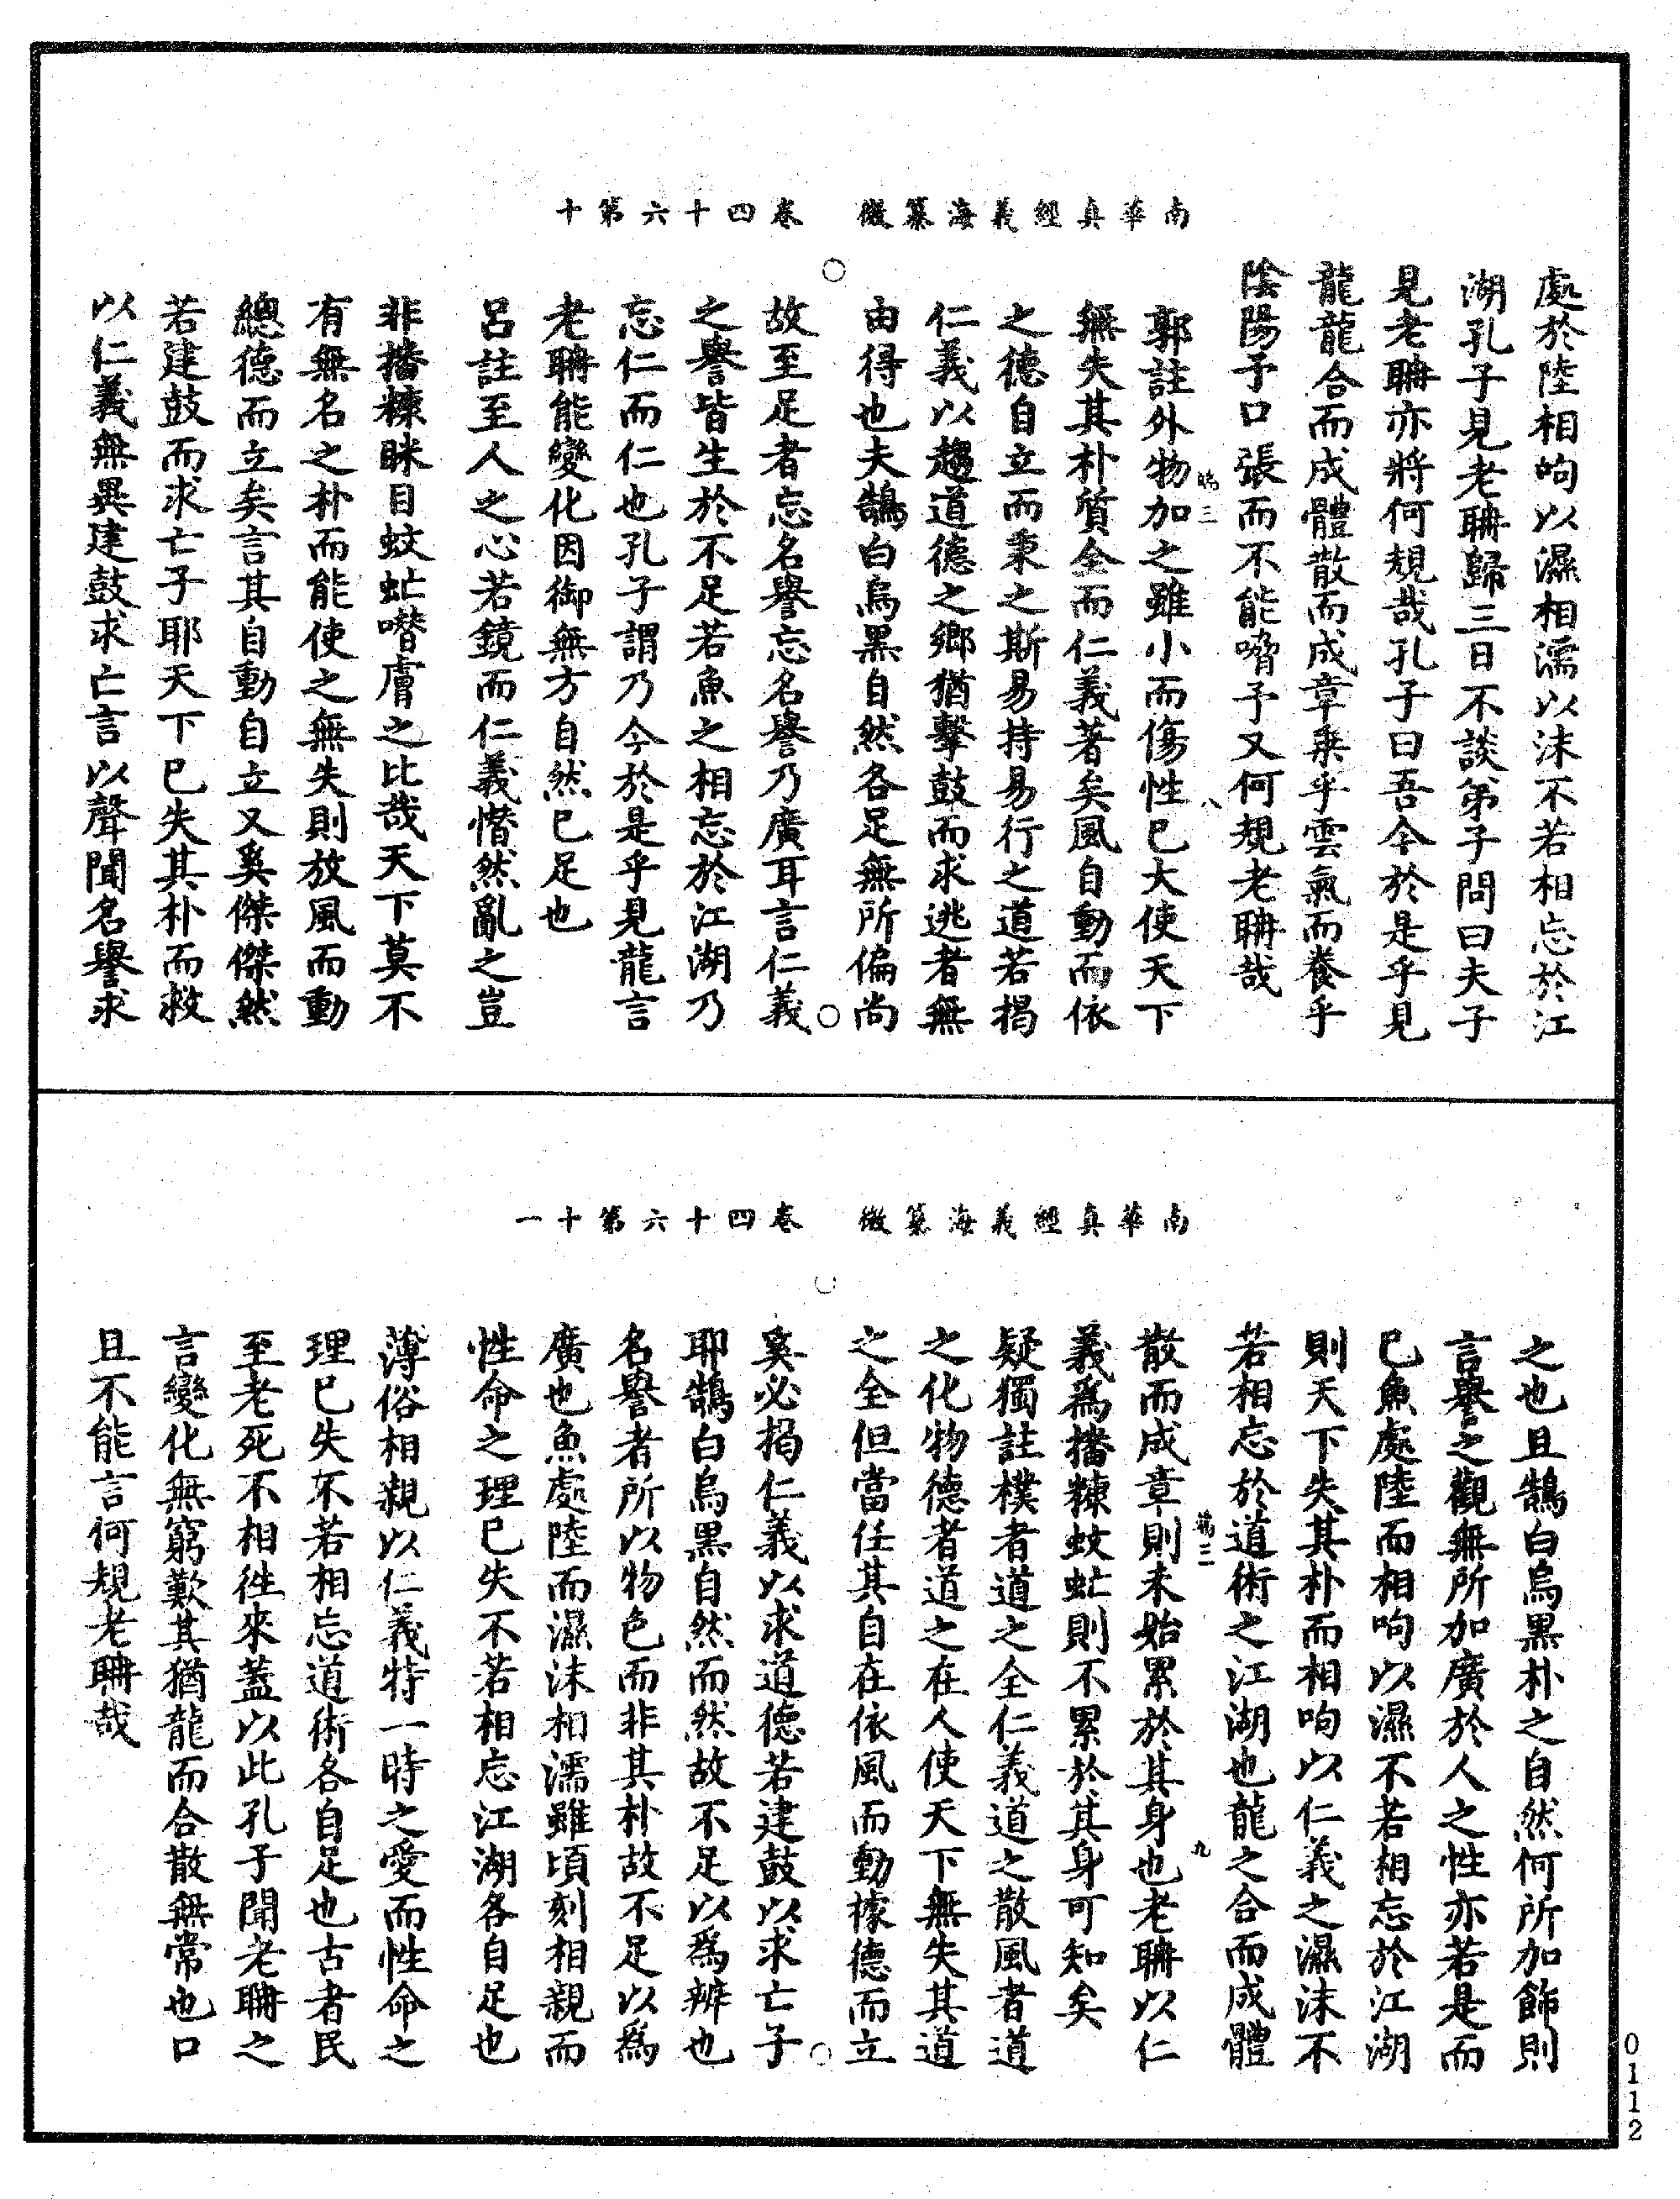 南華真經義海纂微　卷四十六第十
處於陸相呴以濕相濡以沫不若相忘於江
湖孔子見老聃歸三日不談弟子問曰夫子
見老聃亦將何規哉孔子曰吾今於是乎見
龍龍合而成體散而成章乗乎雲氣而養乎
陰陽予口張而不能嗋予又何規老聃哉
郭註外物加之雖小而傷性巳大使天下
無失其朴質全而仁義著矣風自動而依
之德自立而秉之斯易持易行之道若揭
仁義以趨道德之鄉猶擊鼓而求逃者無
由得也夫鵠白烏黑自然各足無所偏尚
故至足者忘名譽忘名譽乃廣耳言仁義
之譽皆生於不足若魚之相忘於江湖乃
忘仁而仁也孔子謂乃今於是乎見龍言
老聃能變化因御無方自然巳足也
呂註至人之心若鏡而仁義憯然亂之豈
非播糠眯目蚊虻噆膚之比哉天下莫不
有無名之朴而能使之無失則放風而動
總德而立矣言其自動自立又奚傑傑然
若建鼓而求亡子耶天下巳失其朴而救
以仁義無異建鼓求亡言以聲聞名譽求
三
八
南華真經義海纂微　卷四十六第十一
之也且鵠白烏黑朴之自然何所加飾則
言譽之觀無所加廣於人之性亦若是而
巳魚處陸而相呴以濕不若相忘於江湖
則天下失其朴而相呴以仁義之濕沫不
若相忘於道術之江湖也龍之合而成體
散而成章則未始累於其身也老聃以仁
義爲播糠蚊虻則不累於其身可知矣
疑獨註樸者道之全仁義道之散風者道
之化物德者道之在人使天下無失其道
之全但當任其自在依風而動據德而立
奚必揭仁義以求道德若建鼓以求亡子
耶鵠白烏黑自然而然故不足以爲辨也
名譽者所以物色而非其朴故不足以爲
廣也魚處陸而濕沫相濡雖頃刻相親而
性命之理巳失不若相忘江湖各自足也
薄俗相親以仁義特一時之愛而性命之
理巳失不若相忘道術各自足也古者民
至老死不相徃來蓋以此孔子聞老聃之
言變化無窮歎其猶龍而合散無常也口
且不能言何規老聃哉
三
九
0112